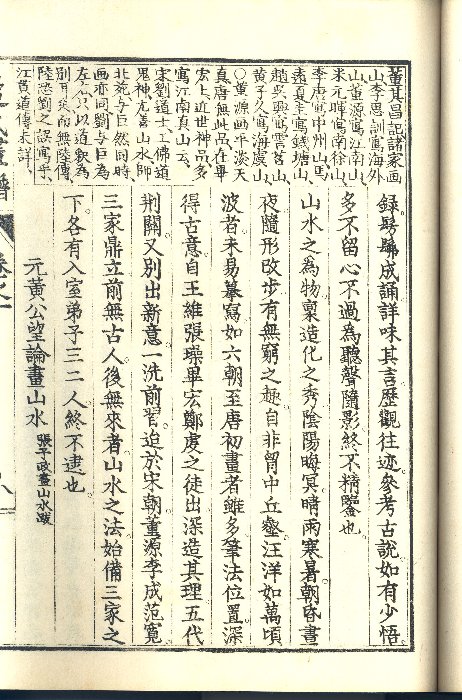 董其昌記諸家画
山李思訓寫海外
山董源寫江南山
米元暉寫南徐山
李唐寫中州山馬
遠夏圭寫錢塘山
趙吳興寫霅苕山
黃子久寫海虞山
○董源画平淡天
真唐無此品在畢
宏上近世神品多
寓江南真山云
宋劉道士工佛道
鬼神尤善山水師
北苑与巨然同時
画亦同劉与巨為
左右只以道釈為
別耳然而無陸傳
陸恐劉之誤寫乎
江黃道傳未詳
録髣髴成誦詳味其言歷觀往迹參考古說如有少悟
多不留心不過為聽聲隨影終不精鑒也
山水之為物稟造化之秀陰陽晦冥晴雨寒暑朝昏晝
夜隨形改步有無窮之趣自非胷中丘壑汪洋如萬頃
波者未易摹寫如六朝至唐初畫者雖多筆法位置深
得古意自王維張璪畢宏鄭虔之徒出深造其理五代
荆關又別出新意一洗前習迨於宋朝董源李成范寬
三家鼎立前無古人後無來者山水之法始備三家之
下各有入室弟子三二人終不逮也
元黃公望論畫山水